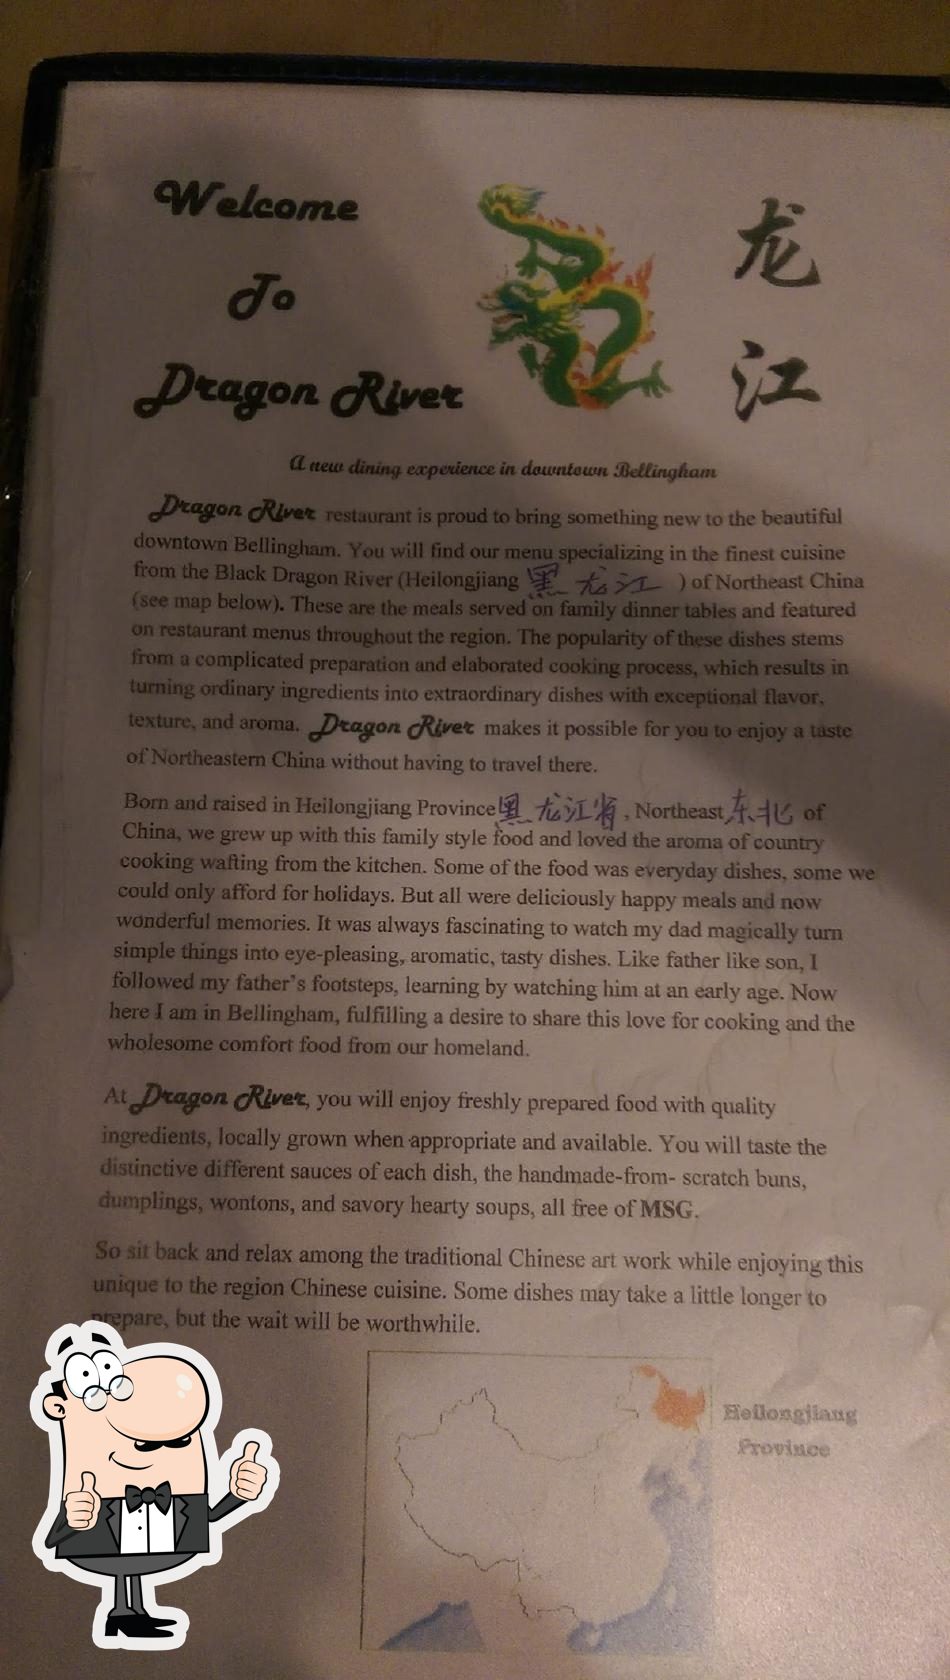 Welcome
To
Dragon River
龙
江
A new dining experience in downtown Bellingham
Dragon River restaurant is proud to bring something new to the beautiful
downtown Bellingham. You will find our menu specializing in the finest cuisine
from the Black Dragon River (Heilongjiang 黑龙江 ) of Northeast China
(see map below). These are the meals served on family dinner tables and featured
on restaurant menus throughout the region. The popularity of these dishes stems
from a complicated preparation and elaborated cooking process, which results in
turning ordinary ingredients into extraordinary dishes with exceptional flavor,
texture, and aroma. Dragon River makes it possible for you to enjoy a taste
of Northeastern China without having to travel there.
Born and raised in Heilongjiang Province 黑龙江省, Northeast 东北 of
China, we grew up with this family style food and loved the aroma of country
cooking wafting from the kitchen. Some of the food was everyday dishes, some we
could only afford for holidays. But all were deliciously happy meals and now
wonderful memories. It was always fascinating to watch my dad magically turn
simple things into eye-pleasing, aromatic, tasty dishes. Like father like son, I
followed my father's footsteps, learning by watching him at an early age. Now
here I am in Bellingham, fulfilling a desire to share this love for cooking and the
wholesome comfort food from our homeland.
At Dragon River, you will enjoy freshly prepared food with quality
ingredients, locally grown when appropriate and available. You will taste the
distinctive different sauces of each dish, the handmade-from- scratch buns,
dumplings, wontons, and savory hearty soups, all free of MSG.
So sit back and relax among the traditional Chinese art work while enjoying this
unique to the region Chinese cuisine. Some dishes may take a little longer to
prepare, but the wait will be worthwhile.
Heilongjiang
Province